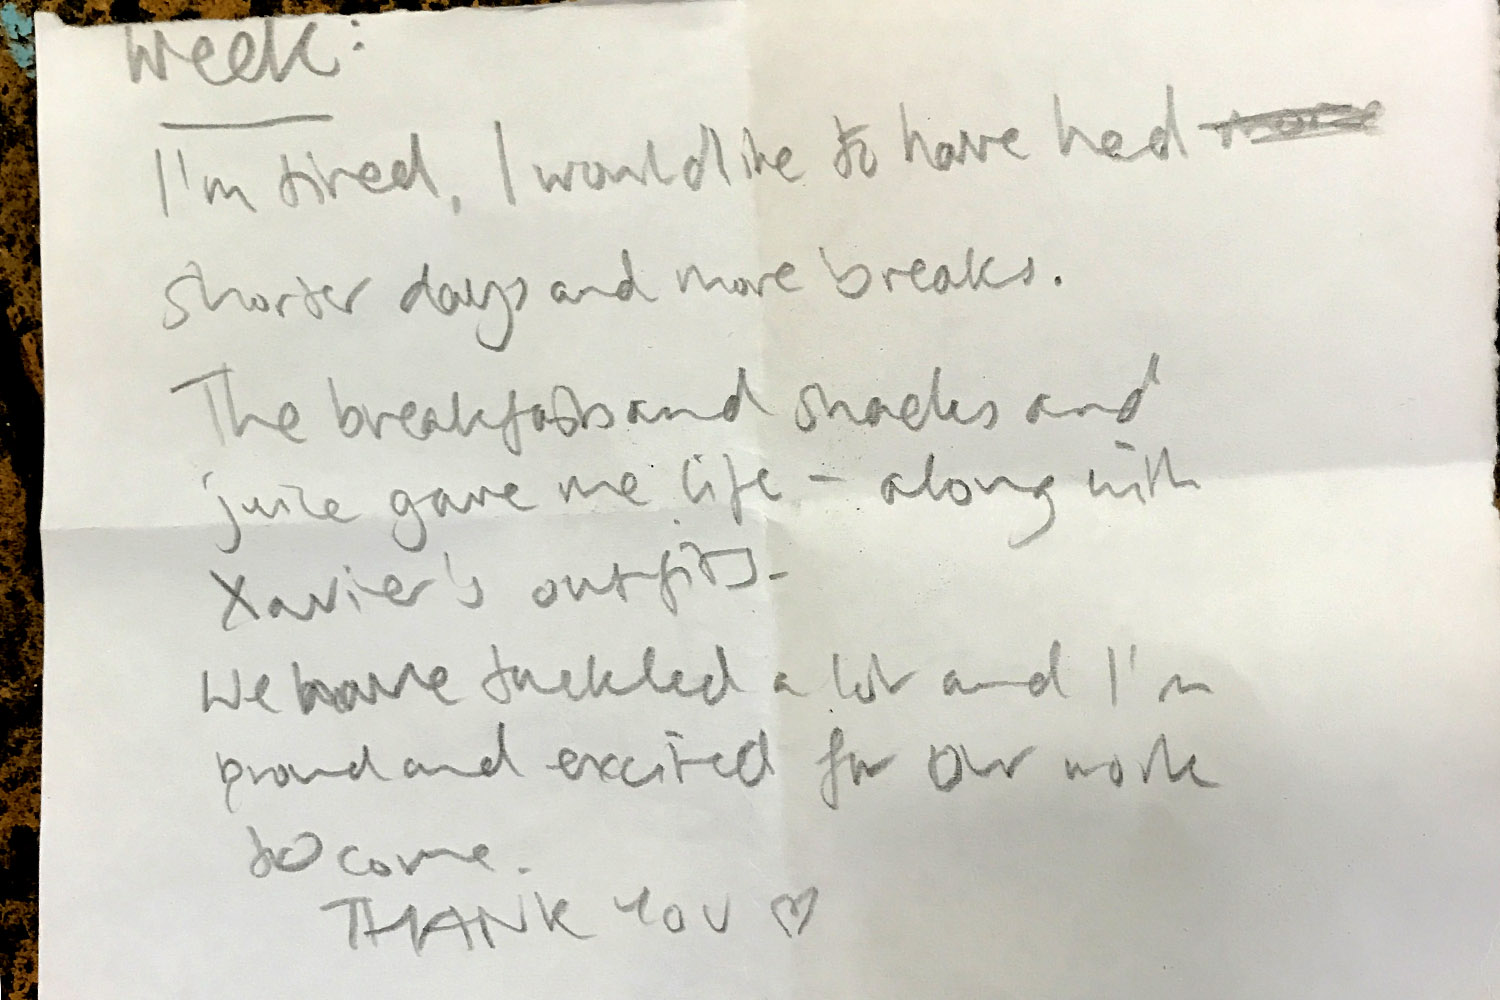 Week:
I'm tired, I would like to have had
shorter days and more breaks.
The breakfasts and snacks and
juice gave me life - along with
Xavier's outfits.
We have tackled a lot and I'm
proud and excited for our work
to come.
THANK YOU ♡